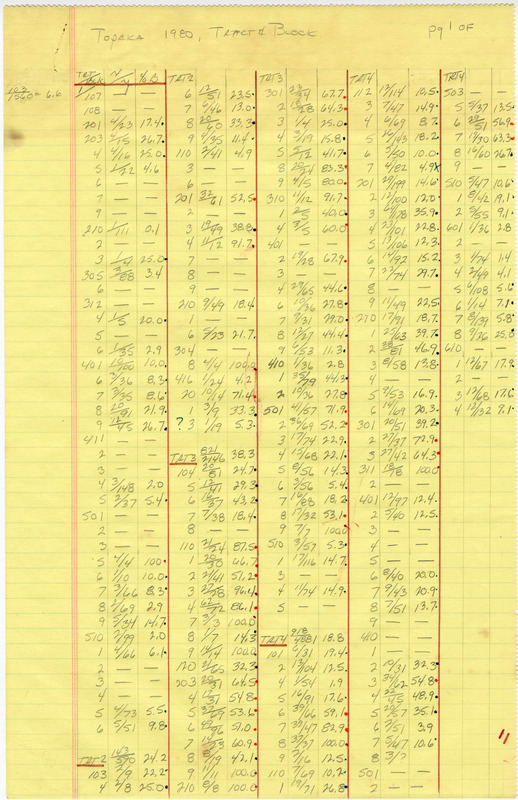 Topeka 1980, Tract & Block pg 1 of
TRT/BLK N/N % B
107 — —
108 — —
201 4/23 17.4
203 26.7
4 4/16 25.0
5 1/22 4.6
6 — —
7 — —
9 — —
210 1/111 0.1
2 — —
3 25.0
305 3/88 3.4
6 — —
312 — —
4 1/5 20.0
5 — —
6 1/35 2.9
401 10.0
6 3/36 8.3
7 3/35 8.6
8 21.9
9 12/45 26.7
411 — —
2 — —
3 — —
4 3/148 2.0
5 2/37 5.4
501 — —
2 — —
3 — —
5 4/4 100
6 1/10 10.0
7 3/36 8.3
8 2/69 2.9
9 5/34 14.7
510 2/99 2.0
1 4/66 6.1
2 — —
3 — —
4 — —
5 4/73 5.5
6 5/51 9.8
TRT2 24.2
103 2/9 22.2
4 2/8 25.0
TRT2
6 12/51 23.5
7 6/46 13.0
8 20/60 33.3
9 4/35 11.4
110 2/41 4.9
3 — —
6 — —
201 32/61 52.5
2 — —
3 19/49 38.8
4 11/12 91.7
7 — —
8 — —
9 — —
210 9/49 18.4
1 — —
6 5/23 21.7
304 — —
8 4/4 100.0
416 1/24 4.2
20 10/14 71.4
1 3/9 33.3
? 3 1/19 5.3
TRT3 821/2146 38.3
104 20/81 24.7
5 12/41 29.3
6 16/37 43.2
7 7/38 18.4
8 — —
110 21/24 87.5
1 20/30 66.7
2 21/41 51.2
3 27/28 96.4
4 62/72 86.1
7 3/3 100.0
8 1/7 14.3
9 100.0
120 21/65 32.3
203 20/31 64.5
4 17/31 54.8
5 53.6
6 51.0
7 14/23 60.9
8 8/19 42.1
9 11/11 100.0
210 8/8 100.0
TRT3
301 67.7
2 18/28 64.3
3 1/4 25.0
4 3/19 15.8
5 5/12 41.7
8 20/24 83.3
9 4/5 80.0
310 11/12 91.7
1 2/5 40.0
4 3/5 60.0
401 — —
2 19/28 67.9
3 — —
4 29/65 44.6
6 10/36 27.8
7 9/31 29.0
8 12/27 44.4
9 6/53 11.3
410 1/36 2.8
1 35/79 44.3
2 10/36 27.8
501 41/57 71.9
2 36/69 52.2
3 17/74 22.9
4 15/68 22.1
5 8/56 14.3
6 3/56 5.4
7 16/88 18.2
8 17/32 53.1
9 7/7 100.0
510 3/57 5.3
1 17/116 14.7
3 — —
4 1/24 14.9
5 — —
TRT4 918/4881 18.8
101 6/31 19.4
2 13/104 12.5
4 1/54 1.9
5 16/91 17.6
6 39/66 59.1
7 39/47 82.9
8 37/37 100.0
9 2/16 12.5
110 7/69 10.2
1 19/71 26.8
TRT4
112 12/114 10.5
3 7/47 14.9
4 6/69 8.7
5 18.2
6 5/50 10.0
7 4/82 4.9x
201 29/199 14.6
2 12/100 12.0
3 35.9
4 23/101 22.8
5 13/106 12.3
6 14/92 15.2
7 22/74 29.7
8 — —
9 11/49 22.5
270 17/91 18.7
1 25/63 39.7
2 38/81 46.9
3 8/58 13.8
4 — —
5 9/53 16.9
6 14/69 20.3
301 20/51 39.2
2 27/37 72.9
3 27/42 64.3
311 18/18 100.0
2 — —
401 12/97 12.4
2 5/40 12.5
3 — —
4 — —
5 — —
6 8/40 20.0
7 9/43 20.9
8 7/51 13.7
9 — —
410 — —
1 — —
2 32.3
3 34/62 54.8
4 22/45 48.9
5 35.1
6 2/51 3.9
7 5/47 10.6
8 3/?
501 — —
2 — —
TRT4
503 — —
5 5/37 13.5
6 29/51 56.9
7 19/30 63.3
8 16/60 26.7
9 — —
510 5/47 10.6
1 8/42 19.1
2 5/55 9.1
601 1/36 2.8
2 — —
3 1/74 1.4
4 2/49 4.1
5 6/108 5.6
6 1/14 7.1
7 8/139 5.8
8 9/36 25.0
610 — —
1 12/67 17.9
2 — —
3 12/68 17.6
4 7.1
11